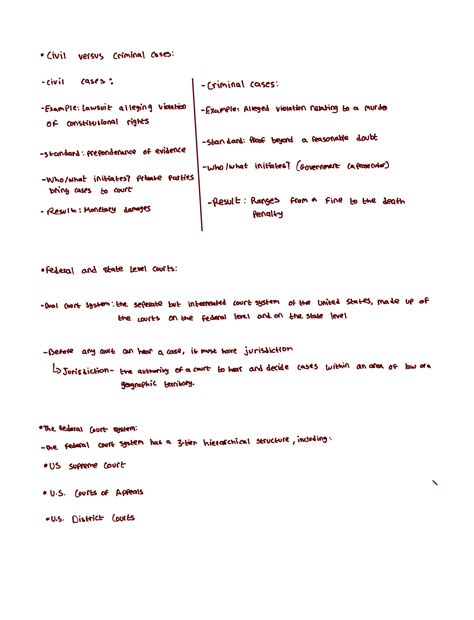 • Civil versus Criminal Cases:
- Civil cases:
- Example: Lawsuit alleging violation
of constitutional rights
- Standard: preponderance of evidence
- Who/what initiates? Private parties
bring cases to court
- Result: Monetary damages
- Criminal cases:
- Example: Alleged violation relating to a murder
- Standard: Proof beyond a reasonable doubt
- Who/what initiates? (Government (a prosecutor)
- Result: Ranges from a fine to the death
penalty
• Federal and state level courts:
- Dual court system: the seperate but interrelated court system of the United States, made up of
the courts on the federal level and on the state level
- Before any court can hear a case, it must have jurisdiction
↳ Jurisdiction - the authority of a court to hear and decide cases within an area of law or a
geographic territory.
• The Federal Court System:
- The federal court system has a 3-tier hierarchical structure, including:
• US supreme court
• U.S. Courts of Appeals
• U.S. District Courts